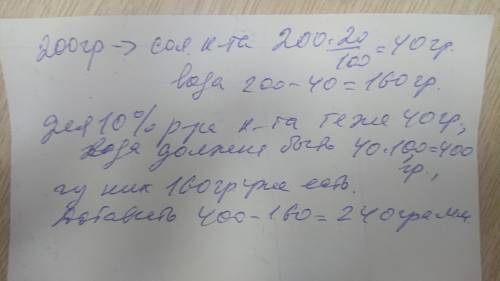 200гр -> сол. к-та 200·20/100=40гр.
вода 200-40=160гр.
Для 10% р-ра к-та те же 40гр,
вода должна быть 40·100=400
гр.,
у них 160гр уже есть.
Добавить 400-160=240грамм.